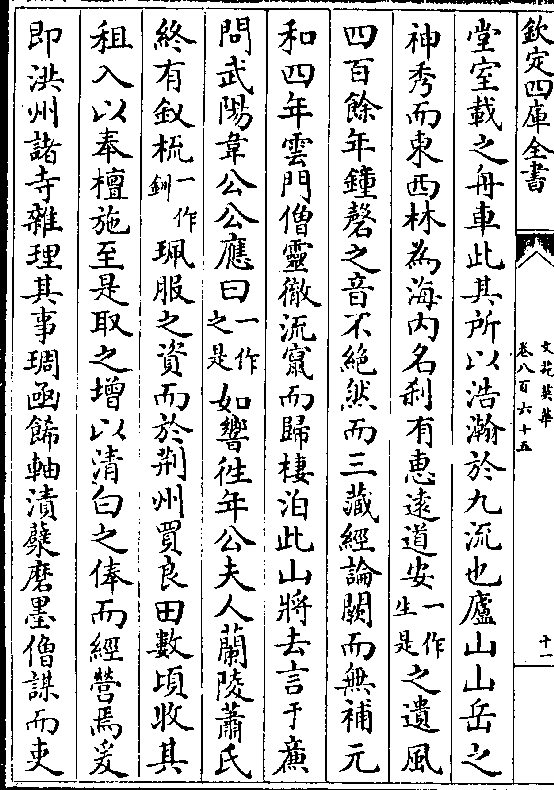 欽定四庫全書
文苑英華
卷八百六十五
十一
堂室載之舟車此其所以浩瀚於九流也廬山山岳之
神秀而東西林為海内名刹有惠遠道安一作生是之遺風
四百餘年鐘磬之音不絶然而三藏經論闕而無補元
和四年雲門僧靈徹流竄而歸棲泊此山將去言于亷
問武陽韋公公應曰一作之是如響徃年公夫人蘭陵蕭氏
終有釵梳一作釧珮服之資而於荆州買良田數頃收其
租入以奉檀施至是取之增以清白之俸而經營焉爰
即洪州諸寺雜理其事琱函餙軸漬蘗磨墨僧謀而吏